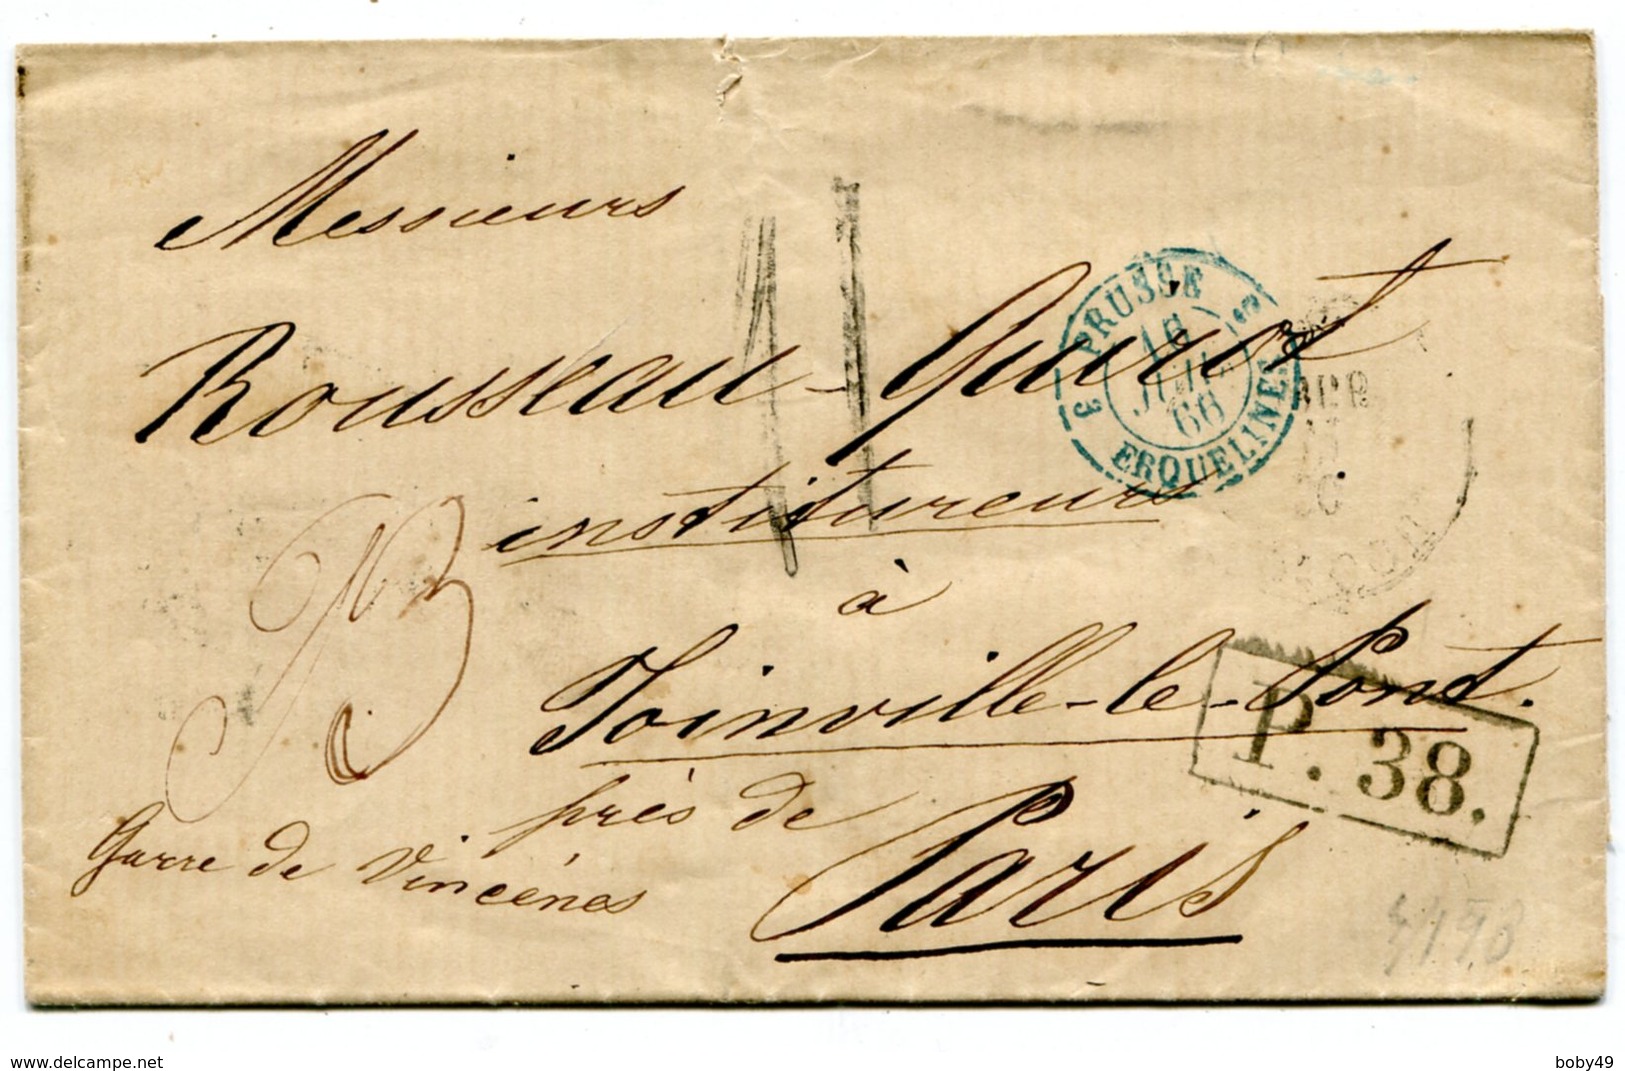 Messieurs
Rousseau-Gurot
institureurs
à
Joinville-le-Pont.
près de
Paris
Garre de Vincénes
PRUSSE
3
16
JUIL
66
ERQUELINES
P. 38.
delcampe.net
boby49